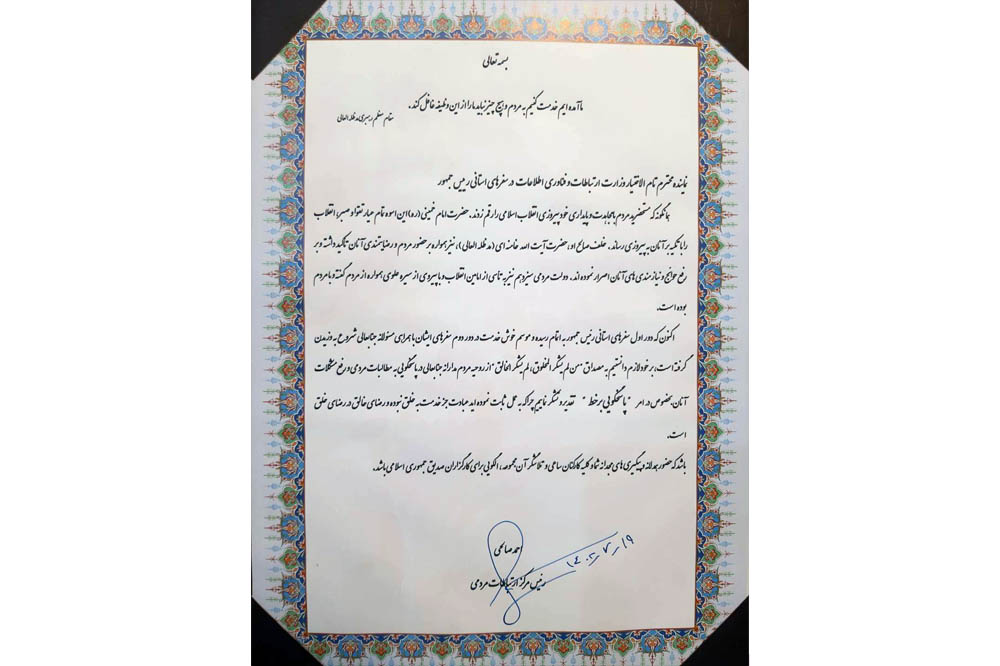 بسمه تعالی
ما آمده ایم خدمت کنیم به مردم و هیچ چیز نباید ما را از این وظیفه غافل کند.
مقام معظم رهبری مدظله العالی
نماینده محترم تام الاختیار وزارت ارتباطات و فناوری اطلاعات در سفرهای استانی رییس جمهور
همانگونه که مستحضرید مردم با مجاهدت و پایداری خود پیروزی انقلاب اسلامی را رقم زدند. حضرت امام خمینی (ره) این اسوه تمام عیار تقوا و صبر، انقلاب
را با تکیه بر آنان به پیروزی رساند. خلف صالح او، حضرت آیت الله خامنه ای (مدظله العالی)، نیز همواره بر حضور مردم و رضایتمندی آنان تأکید داشته و بر
رفع حوائج و نیازمندی های آنان اصرار نموده اند. دولت مردمی سیزدهم نیز به تاسی از امامین انقلاب و با پیروی از سیره علوی همواره از مردم گفته و با مردم
بوده است.
اکنون که دور اول سفرهای استانی رئیس جمهور به اتمام رسیده و موسم خوش خدمت در دور دوم سفرهای ایشان با همراهی مسئولانه جنابعالی شروع به وزیدن
گرفته است، بر خود لازم دانستیم به مصداق "من لم یشکر المخلوق، لم یشکر الخالق" از روحیه مردم مدارانه جنابعالی در پاسخگویی به مطالبات مردمی و رفع مشکلات
آنان بخصوص در امر "پاسخگویی برخط" تقدیر و تشکر نماییم چرا که به عمل ثابت نموده اید عبادت جز خدمت به خلق نبوده و رضای خالق در رضای خلق
است.
باشد که حضور همدلانه و پیگیری های مجدانه شما و کلیه کارکنان ساعی و تلاشگر آن مجموعه، الگویی برای کارگزاران صدیق جمهوری اسلامی باشد.
احمد صالحی
رئیس مرکز ارتباطات مردمی
۱۴۰۲/۷/۱۹